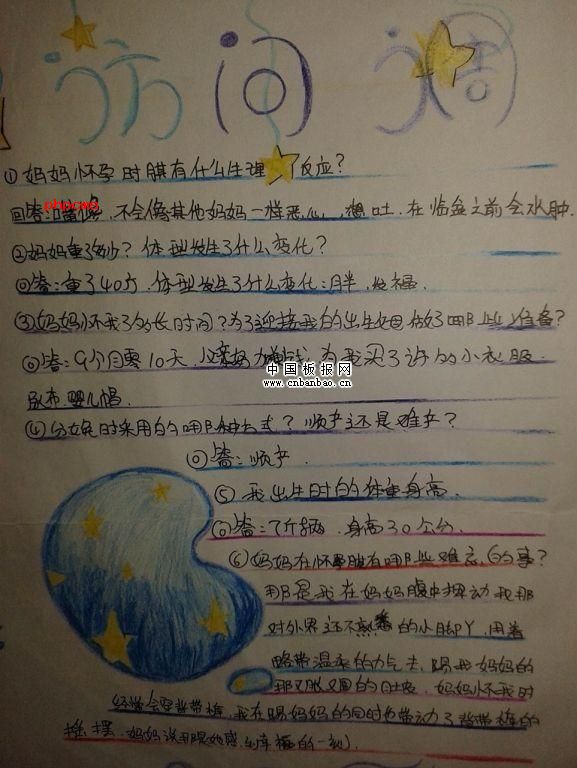 访问 调
①妈妈怀孕时期有什么生理反应?
phpcms
回答:嗜 ,不会像其他妈妈一样恶心、想吐.在临盆之前会水肿.
②妈妈重了多少?体型发生了什么变化?
回答:重了40斤.体型发生了什么变化:胖.发福.
③妈妈怀我了多长时间?为了迎接我的出生她做了哪些准备?
回答:9个月零10天.父亲努力 钱,为我买了许的小衣服.
中国板报网
www.cnbanbao.cn
尿布.婴儿帽.
④分娩时采用的哪种方式?顺产还是难产?
回答:顺产.
⑤我出生时的体重身高.
回答:7斤 .身高30公分.
⑥妈妈在怀孕期有哪些难忘的事?
那是我在妈妈腹中 动我那
对外界还不熟悉的小脚丫,用着
略带温柔的力气去踢我妈妈的
那又胀又圆的肚皮.妈妈怀我时
经常会穿背带裤,我在踢妈妈的同时也带动了背带裤的
摇摆.妈妈说那是她感到幸福的一刻.